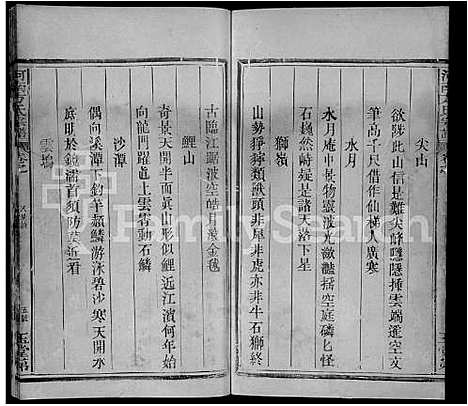 尖山
欲陟此山信是難尖峰隱隱挿雲端遙空文
筆高千尺借作仙梯人廣寒
水月
水月庵中景物靈波光瀲灎揺空庭磷匕怪
石巍然峙疑是諸天落下星
獅嶺
山勢猙獰類獸頭非犀非虎亦非牛石獅終
古臨江踞波空皓月滾金毬
鯉山
奇景天開半面真山形似鯉近江濱何年始
化龍門躍道上雲雷動石鱗
沙潭
偶向溪潭下釣羊頳鱗游泳碧沙寒天開水
底明於鏡濡首須防莫近看
雲塢
FamilySearch